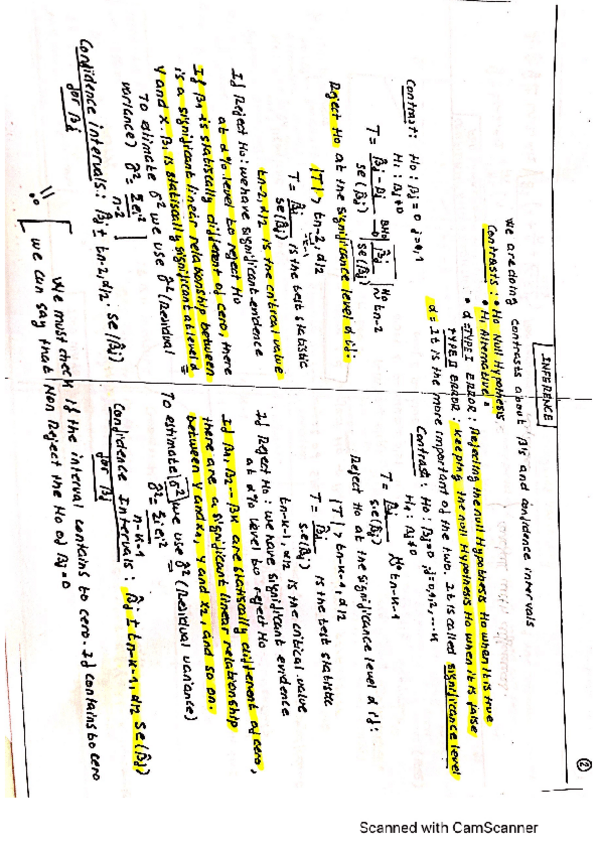 ②
INFERENCE
We are doing contrasts about β's and confidence intervals
Contrasts: • Ho Null Hypothesis
• H1 Alternative
• α = TYPE I ERROR: Rejecting the null Hypothesis Ho when it is true
TYPE II ERROR: keeping the null Hypothesis Ho when it is false
α = It is the more important of the two. It is called significance level
Contrast: Ho: βj = 0 j = 0,1
H1: βj ≠ 0
T = β̂j - βj / se(β̂j) → β̂j / se(β̂j) ~ tn-2
Reject Ho at the significance level α if:
|T| > tn-2, α/2
T = β̂j / se(β̂j) is the test statistic
tn-2, α/2 is the critical value
If Reject Ho: we have significant evidence
at α% level to reject Ho
If β1 is statiscally different of zero, there
is a significant linear relationship between
Y and X. β1 is statiscally significant at level α
To estimate σ² we use σ̂² (Residual
variance) σ̂² = Σei² / n-2
Confidence intervals: β̂j ± tn-2, α/2 · se(β̂j)
for βj
Contrast: Ho: βj = 0 j = 0,1,2,...k
H1: βj ≠ 0
T = β̂j / s.e(β̂j) ~ tn-k-1
Reject Ho at the significance level α if:
|T| > tn-k-1, α/2
T = β̂j / s.e(β̂j) is the test statistic
tn-k-1, α/2 is the critical value
If Reject Ho: we have significant evidence
at α% level to reject Ho
If β1, β2 ... βk are statiscally different of zero,
there are a significant linear relationship
between Y and X1, Y and X2, and so on.
To estimate σ² we use σ̂² (Residual variance)
σ̂² = Σei² / n-k-1
Confidence Intervals: β̂j ± tn-k-1, α/2 se(β̂j)
for βj
!! We must check if the interval contains to zero. If contains to zero
we can say that Non Reject the Ho of βj = 0
Scanned with CamScanner